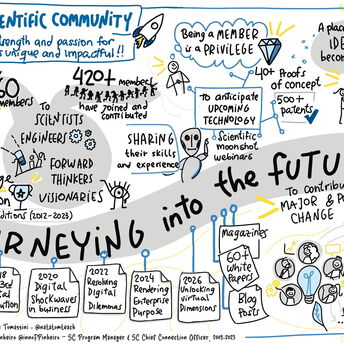 SCIENTIFIC COMMUNITY
strength and passion for
is unique and impactful!!
Being a MEMBER
is a PRIVILEGE
A place
IDE
becom
60
members
420+ members
have joined and
contributed
40+ Proofs of
concept
500+
patents
To anticipate
UPCOMING
TECHNOLOGY
TO
SCIENTISTS
ENGINEERS
FORWARD
THINKERS
VISIONARIES
SHARING
their skills
and experience
Scientific
moonshot
webinars
ditions (2012-2023)
RNEYING into the FUTU
To contribu
MAJOR & P
CHANGE
Magazines
60+
White
Papers
Blog
Posts
18
3rd
ital
ution
2020
Digital
ShockWaves
in business
2022
Resolving
Digital
Dilemmas
2024
Rendering
Enterprise
Purpose
2026
Unlocking
Virtual
Dimensions
Tomassini - @natatomteach
inheiro @innoTPinheiro - SC Program Manager & SC Chief Connection Officer, 2009-2023